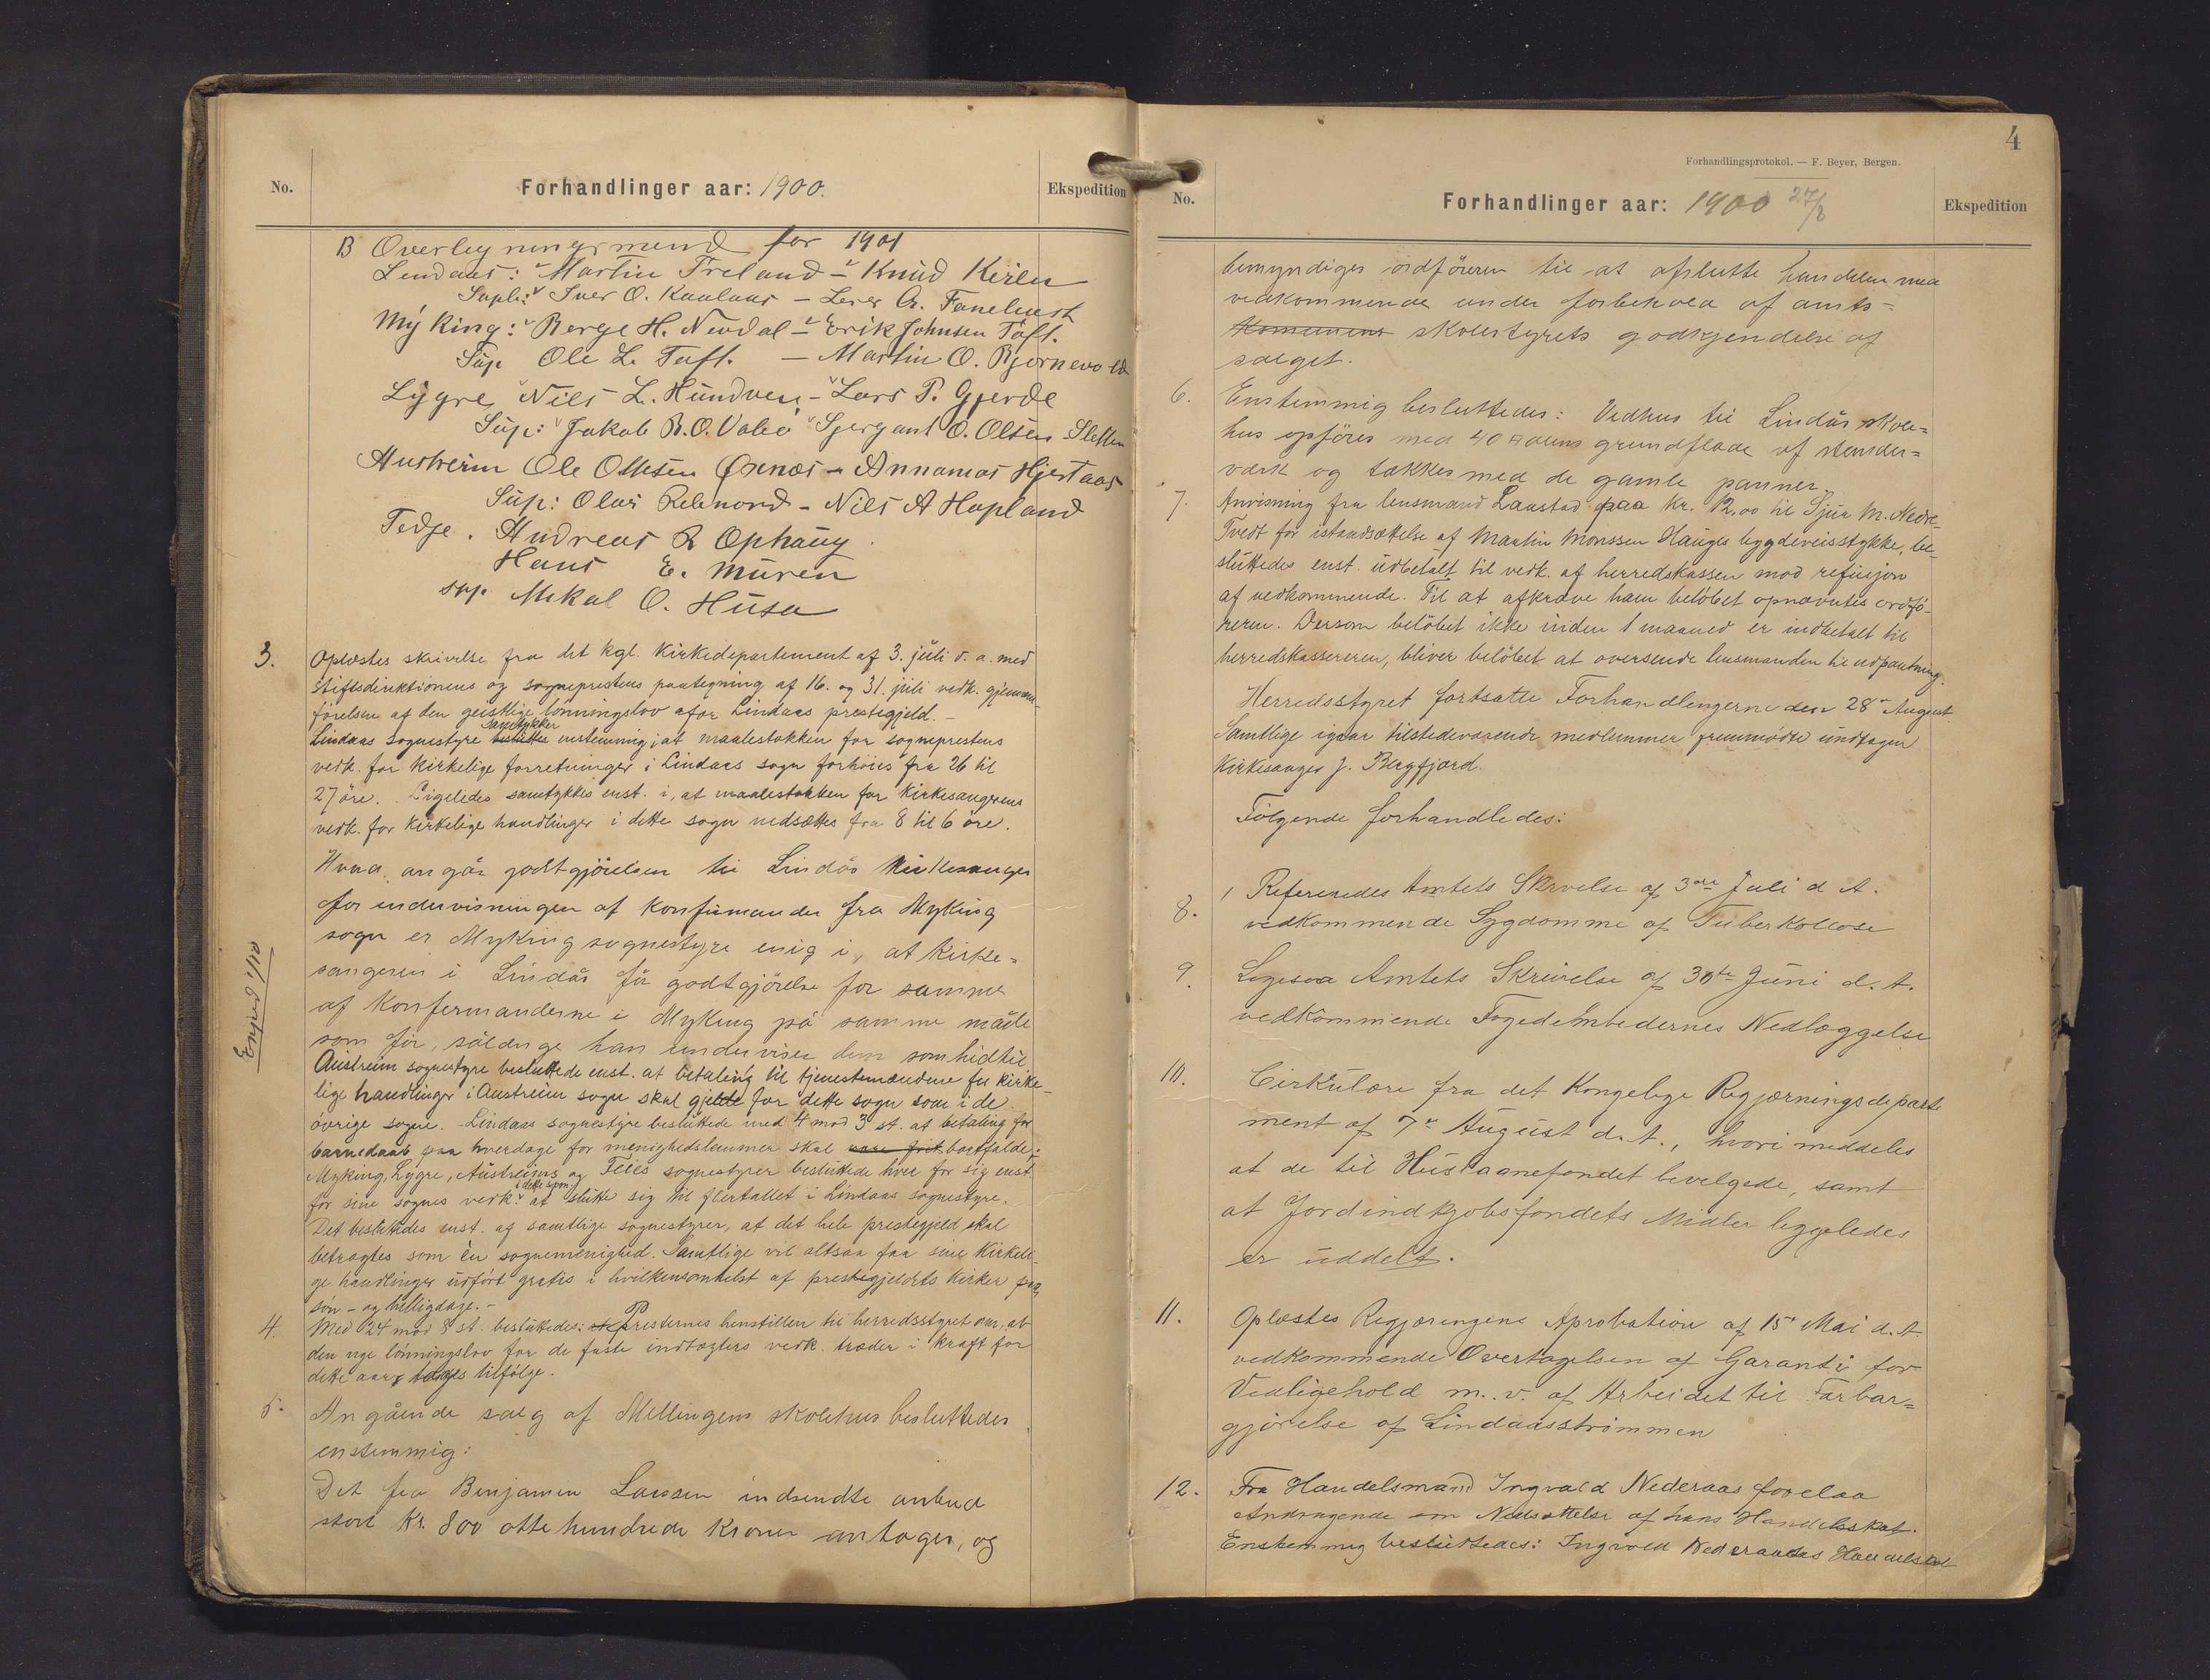 No.
Forhandlinger aar: 1900.
Ekspedition
B Overligningsmend for 1901
Lindaas: Martin Freland – Knud Keilen
Suplr: Iver O. Kaalaas – Lars A. Fanebust
Myking: Berge H. Nevdal – Erik Johnsen Toft.
Sup. Ole L. Toft. – Martin O. Bjørnevold
Lygre Nils L. Hundven – Lars P. Gjerde
Sup: Jakob R. O. Valeo Sjergant O. Olsen Sletten
Austreim Ole Olsen Øxnæs – Annanias Hjertaas
Sup: Olai Rebnord – Nils A Hopland
Fedje. Andreas R Ophaug
Hans E. Muren
sup. Mikal O. Husa
3.
Oplæstes skrivelse fra det kgl. Kirkedepartement af 3. juli d. a. med
stiftsdirektionens og sogneprestens paategning af 16. og 31. juli vedk. gjennem-
førelsen af den geistlige lønningslov afor Lindaas prestegjeld. –
samtykker
Lindaas sognestyre besluttes enstemmig i at maalestokken for sogneprestens
vedk. for kirkelige forretninger i Lindaas sogn forhøies fra 26 til
27 øre. Ligeledes samtykkes enst. i, at maalestokken for kirkesangerens
vedk. for kirkelige handlinger i dette sogn nedsættes fra 8 til 6 øre.
Hvad angår godtgjörelsen til Lindås kirkesanger
for undervisningen af konfirmander fra Myking
sogn er Myking sognestyre enig i, at kirke=
sangeren i Lindås får godtgjörelse for samme
af konfermanderne i Myking på samme måde
som för, sålænge han underviser dem som hidtil
Exped 1/10
Austreim sognestyre besluttede enst. at betaling til tjenestemændene for kirke-
lige handlinger i Austreim sogn skal gjelde for dette sogn som i de
øvrige sogne. – Lindaas sognestyre besluttede med 4 mod 3 st. at betaling for
barnedaab paa hverdage for menighedslemmer skal være frit bortfalde.
Myking, Lygre, Austreims og Feies sognestyrer besluttede hver for sig enst.
i dette spm.
for sine sognes vedk. at slutte sig til flertallet i Lindaas sognestyre.
Det besluttedes enst. af samtlige sognestyrer, at det hele prestegjeld skal
betragtes som én sognemenighed. Samtlige vil altsaa faa sine kirkeli-
ge handlinger udført gratis i hvilkensomhelst af prestegjeldets kirker paa
søn- og helligdage. –
4.
Med 24 mod 8 st. besluttedes: Presternes henstillen til herredsstyret om, at
den nye lønningslov for de faste indtægters vedk. træder i kraft for
dette aar, tages tilfølge.
5.
Angående salg af Mellingens skolehus besluttedes
enstemmig:
Det fra Benjamin Larssen indsendte anbud
stort Kr. 800 otte hundrede Kroner antages, og
4
Forhandlingsprotokol. — F. Beyer, Bergen.
No.
Forhandlinger aar: 1900 27/8
Ekspedition
bemyndiges ordföreren til at afslutte handelen med
vedkommende under forbehold af amts=
komunens skolestyrets godkjendelse af
salget.
6.
Enstemmig besluttedes: Vedhus til Lindås skole=
hus opföres med 40 □ alens grundflade af stender=
værk og tækkes med de gamle panner.
7.
Anvisning fra lensmand Laastad paa kr. 12,00 til Sjur M. Nedre-
Tvedt for istandsættelse af Martin Monssen Hauges bygdeveisstykke, be-
sluttedes enst. udbetalt til vedk. af herredskassen mod refusjon
af vedkommende. Til at afkræve ham beløbet opnævntes ordfø-
reren. Dersom beløbet ikke inden 1 maaned er indbetalt til
herredskassereren, bliver beløbet at oversende lensmanden til udpantning.
Herredsstyret fortsatte Forhandlingerne den 28de August
Samtlige igaar tilstedeværende medlemmer fremmødte undtagen
Kirkesanger J. Bergfjord.
Følgende forhandledes:
8.
Refereredes Amtets Skrivelse af 3die Juli d. A.
vedkommende Sygdomme af Tuberkollose
9.
Ligesaa Amtets Skrivelse af 30te Juni d. A.
vedkommende Fogedembedernes Nedlæggelse
10.
Cirkulære fra det Kongelige Regjæringsdeparte
ment af 7de August d. A., hvori meddeles
at de til Huslaanefondet bevilgede, samt
at Jordindkjøbsfondets Midler liggeledes
er uddelt.
11.
Oplæstes Regjæringens Aprobation af 15de Mai d. A
vedkommende Overtagelsen af Garanti for
Vedligehold m. v. af Arbeidet til Farbar=
gjørelse af Lindaasstrømmen
12.
Fra Handelsmand Ingvald Nederaas forelaa
Andragende om Nedsættelse af hans Handelsskat.
Enstemmig besluttedes: Ingvald Nederaas Handelsskat